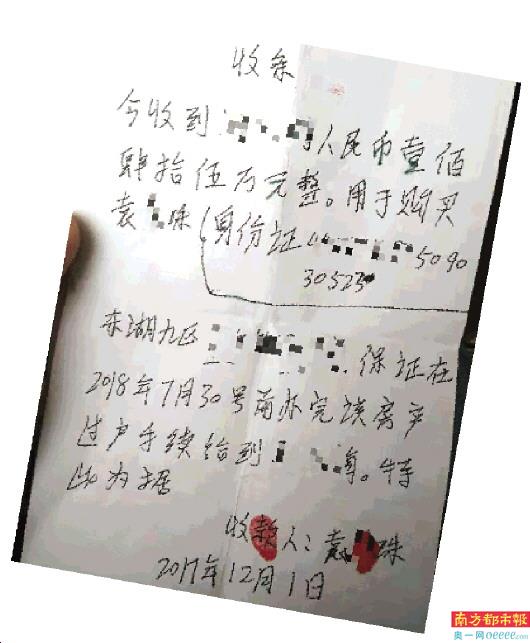 收条
今收到 人民币壹佰
肆拾伍万元整。用于购买
袁 珠(身份证44 5090
30523
东湖九区 保证在
2018年7月30号前办完该房产
过户手续给到 。特
此为据
收款人:袁 珠
2017年12月1日
南方都市报
奥一网oeeee.com